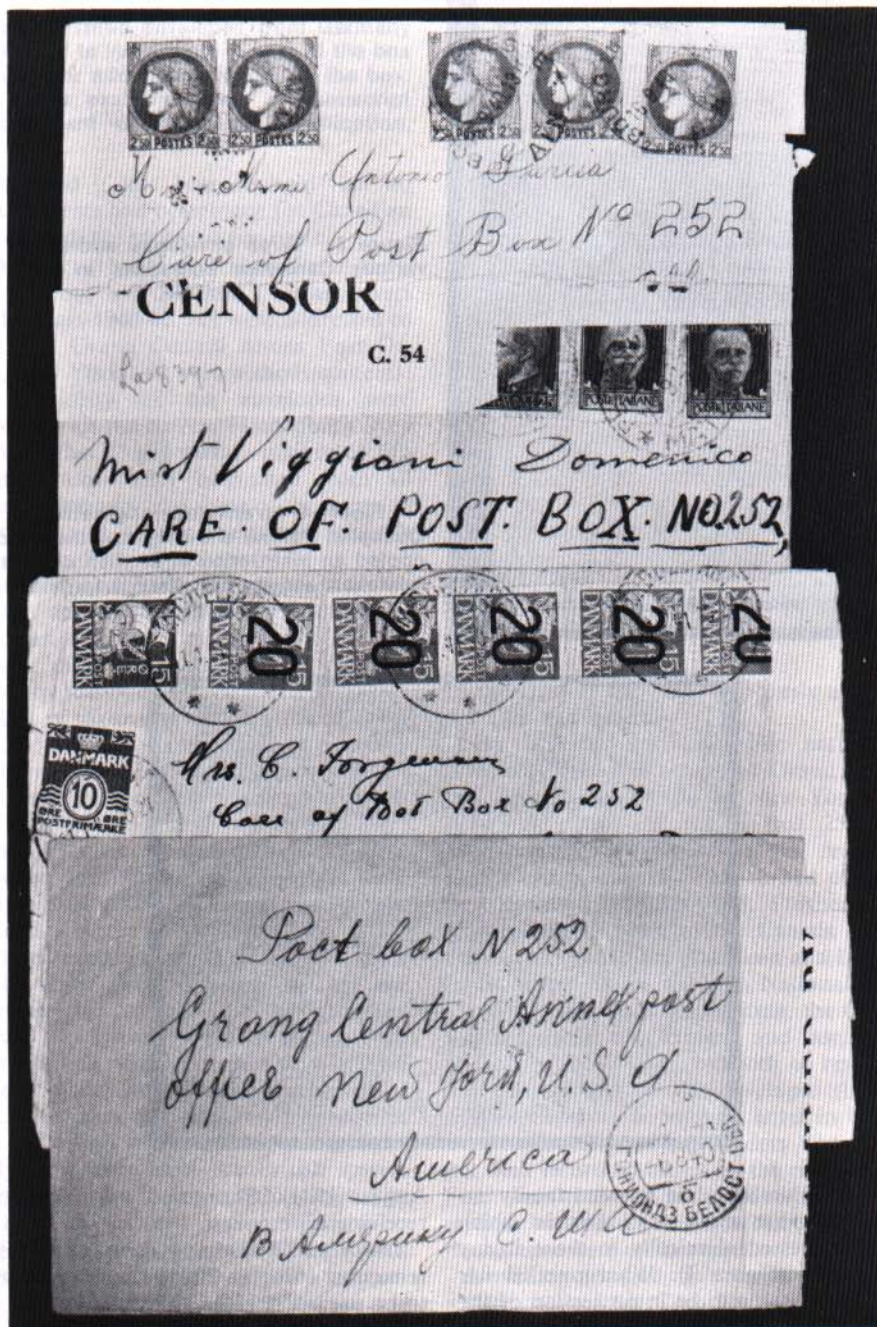 2·50 POSTES 2·50
2·50 POSTES 2·50
2·50 POSTES 2·50
2·50 POSTES 2·50
2·50 POSTES 2·50
Antonio Garcia
Care of Post Box Nº 252
CENSOR
C. 54
La8397
POSTE ITALIANE
POSTE ITALIANE
Viggiani Domenico
CARE. OF. POST. BOX. NO.252,
DANMARK 15
DANMARK 15 20
DANMARK 15 20
DANMARK 15 20
DANMARK 15 20
DANMARK 20
DANMARK
10
ØRE ØRE
POSTFRIMÆRKE
Mrs. C.
Care of Post Box No 252
Poct box N 252
Grang Central Annex post
offes New York, U.S.A
America
В Америку С. Ш А
БЕЛОСТ